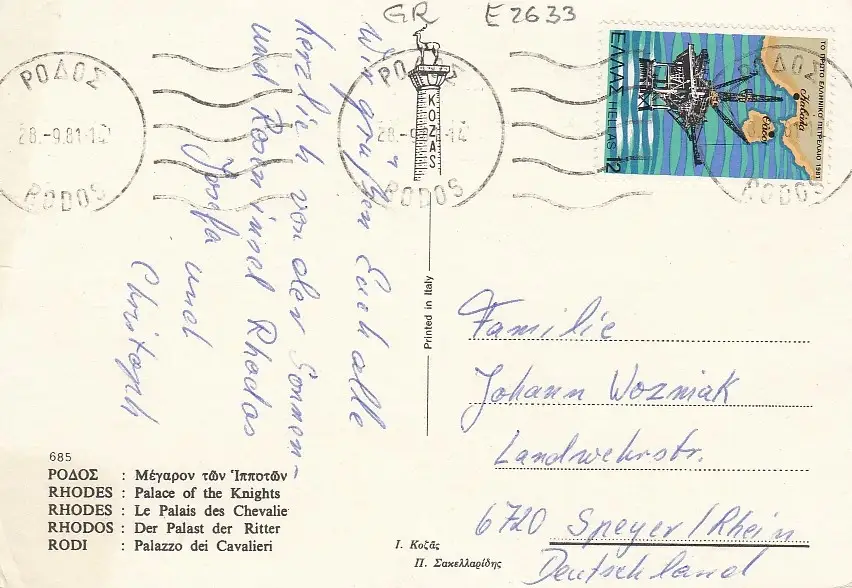 GR E2633
ΡΟΔΟΣ
28.-9.81-12
RODOS
ΡΟΔΟΣ
28.-9.81-14
RODOS
ΡΟΔΟΣ
RODOS
ΚΟΖΑΣ
ΕΛΛΑΣ HELLAS 12
ΤΟ ΠΡΩΤΟ ΕΛΛΗΝΙΚΟ ΠΕΤΡΕΛΑΙΟ 1981
Καβάλα
Θάσος
Wir grüßen Euch alle
herzlich von der Sonnen-
und Roseninsel Rhodos
Josefa und
Christoph
Printed in Italy
Familie
Johann Wozniak
Landwehrstr.
6720 Speyer/Rhein
Deutschland
685
ΡΟΔΟΣ : Μέγαρον τῶν Ἱπποτῶν
RHODES : Palace of the Knights
RHODES : Le Palais des Chevalie
RHODOS : Der Palast der Ritter
RODI : Palazzo dei Cavalieri
Ι. Κοζᾶς
Π. Σακελλαρίδης